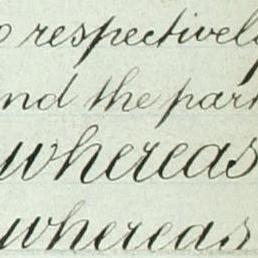 respectively
and the part
whereas
whereas